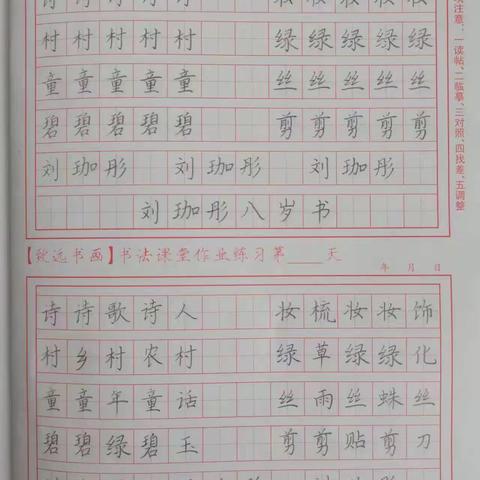 诗诗诗诗诗 妆妆妆妆妆
村村村村村 绿绿绿绿绿
童童童童童 丝丝丝丝丝
碧碧碧碧碧 剪剪剪剪剪
刘珈彤 刘珈彤 刘珈彤
刘珈彤八岁书
书画】书法课堂作业练习第____天
年 月 日
诗诗歌诗人 妆梳妆妆饰
村乡村农村 绿草绿绿化
童童年童话 丝雨丝蛛丝
碧碧绿碧玉 剪剪贴剪刀
注意：一读帖、二临摹、三对照、四找差、五调整